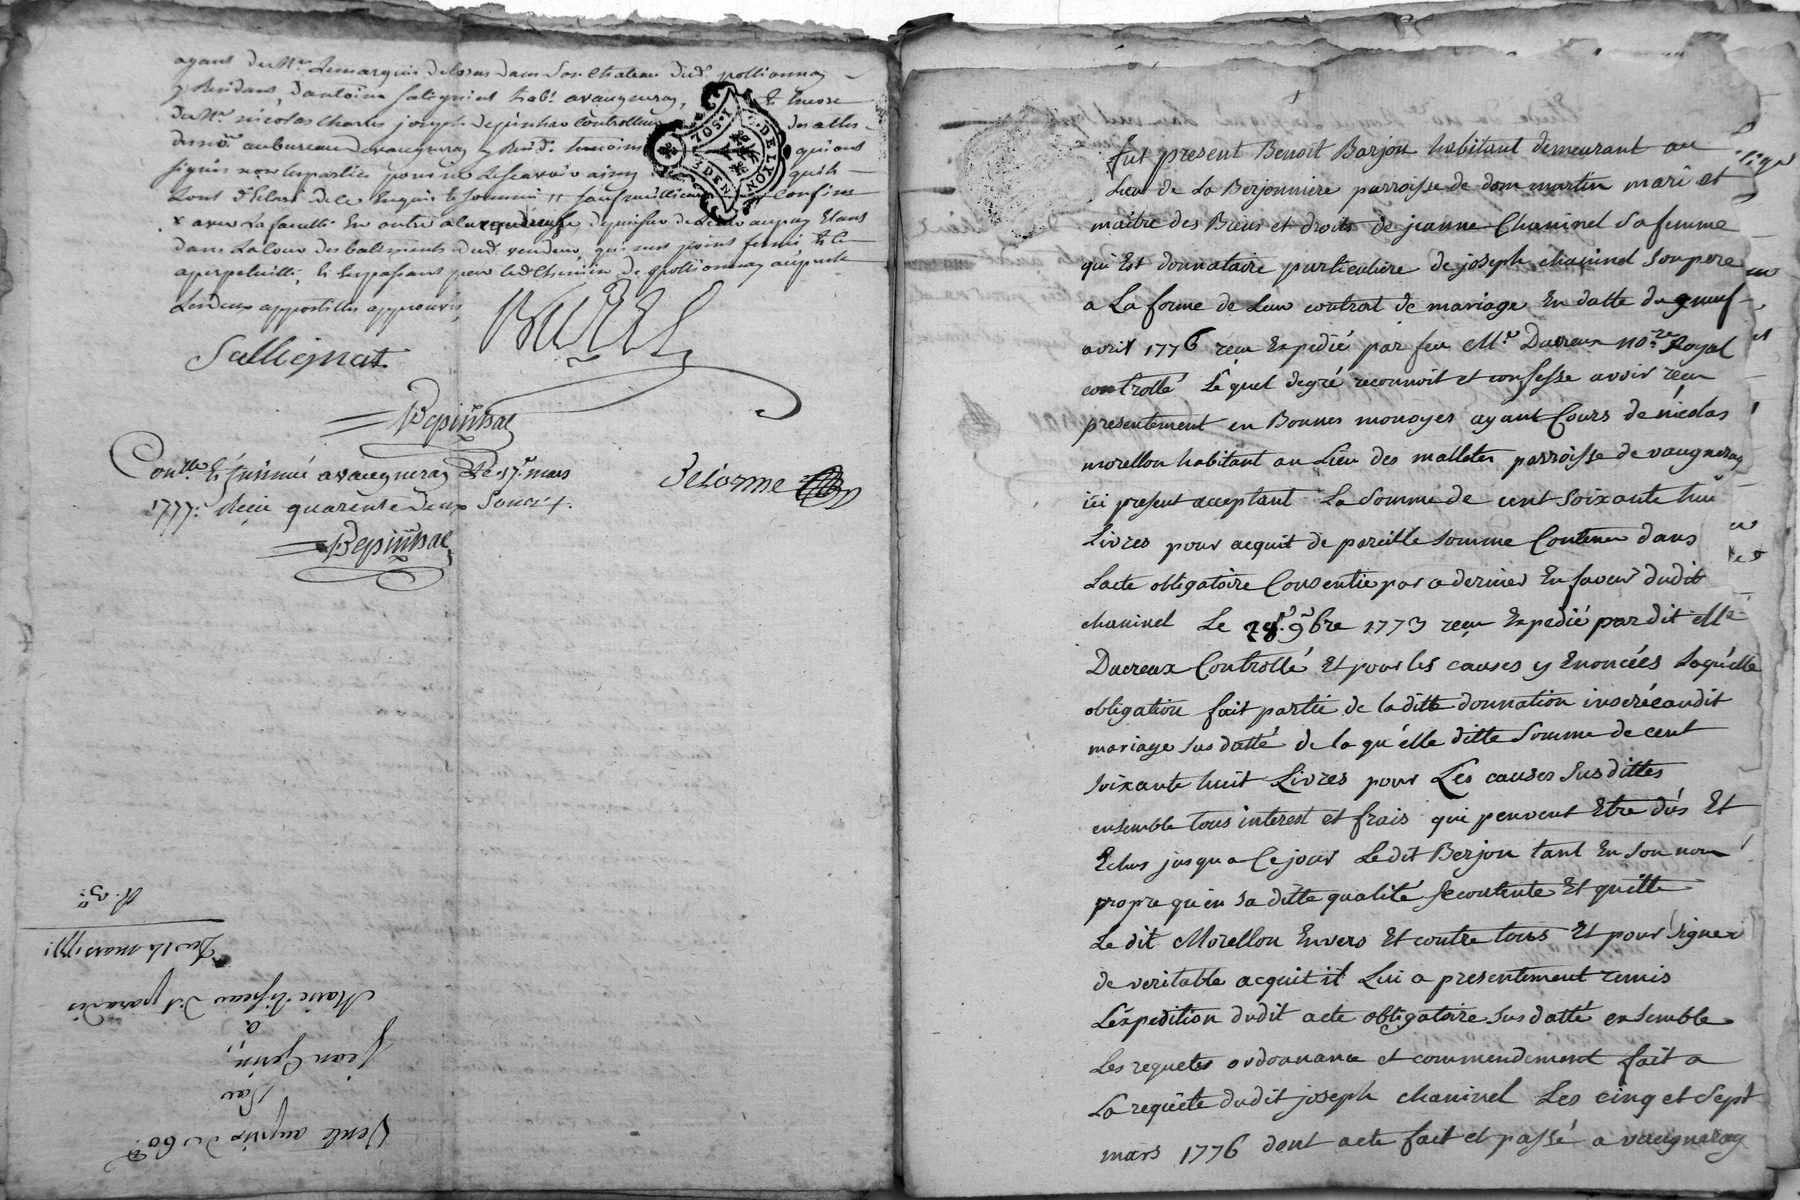 ayant du Mr. Lemarquis deloras dans Son Chateau dud. pollionnay
y Residant, d'antoine habt. avaugneray, Et Encore
du Mr. nicolas Charles joseph depinhac Controlleur des actes
au bureau devaugneray y Resid. temoins qui ont
signés non lesparties pour ne Lescavoir ainsy quils
Lont declaré de ce Enquis & sommés
x avec La faculté En outre de puiser de
dans La Cour des batiments dud. vendeur, qui
aperpetuitté, Et Enpassant pour led. Chemin de pollionnay
Lesdeux appostilles approuvés
Sallignat
Depinhac
Conllé & insinué avaugneray Le 17 mars
1777. Reçu quarente deux Sous
Delorme
Depinhac
Vente auprix de 60
Par
Jean
a
Marie dit paradis
Du 14 mars 1777.
.SOL.
DE LYON
DEN
fut present Benoit Barjon habitant demeurant au
Lieu de La Berjonniere parroisse de dommartin mari et
maitre des Biens et droits de jeanne Chaninel Sa femme
qui Est donnataire particuliere de joseph chaninel Son pere
a La forme de Leur contrat de mariage En datte du 9 neuf
avril 1776 reçu Expedié par feu Mr. Ducreux nore. Royal
controllé Lequel degré reconnoit et confesse avoir reçu
presentement en Bonnes monoyes ayant Cours de nicolas
morellon habitant au Lieu des malletes parroisse de vaugneray
ici present acceptant La Somme de cent Soixante huit
Livres pour acquit de pareille Somme Contenue dans
Lacte obligatoire Consentie par a dernier En faveur dudit
chaninel Le 28. 9bre 1773 reçu Expedié par dit Me
Ducreux Controllé Et pour les causes y Enoncées Laquelle
obligation fait partie de la ditte donnation inseréeaudit
mariage sus datté de la qu'elle ditte Somme de cent
Soixante huit Livres pour Les causes Susdittes
ensemble tous interest et frais qui peuvent Etre dûs Et
Echus jusqu a Cejour Ledit Berjon tant En Son nom
propre qu'en sa ditte qualité Secontente Et quitte
Le dit Morellon Envers Et contre tous Et pour Signe
de veritable acquit il Lui a presentement remis
L'expedition dudit acte obligatoire Sus datté ensemble
Les requetes ordonnance et commendement fait a
La requête dudit joseph chaninel Les cinq et Sept
mars 1776 dont acte fait et passé a vaugneray